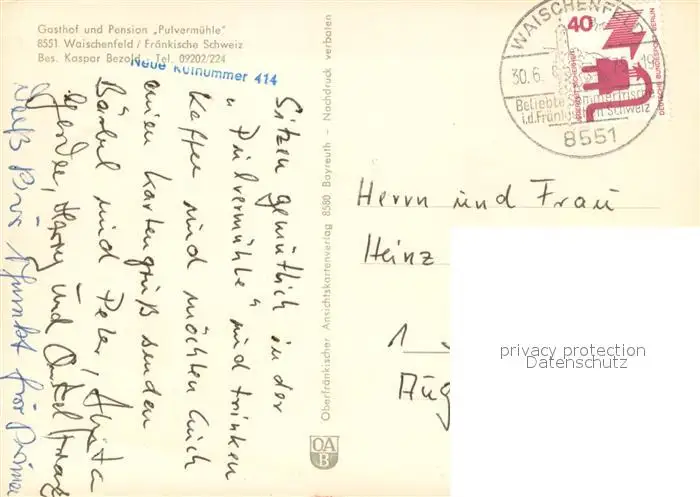 Gasthof und Pension „Pulvermühle"
8551 Waischenfeld / Fränkische Schweiz
Bes. Kaspar Bezold, Tel. 09202/224
Neue Rufnummer 414
Sitzen gemütlich in der
„Pulvermühle" und trinken
Kaffee und möchten Euch
einen Kartengruß senden
Bärbel und Peter, Christa
Gerda, Harry und Onkel
Oberfränkischer Ansichtskartenverlag 8580 Bayreuth – Nachdruck verboten
OA
B
WAISCHENFELD
30.6.
Beliebte Sommerfrische
i.d. Fränkischen Schweiz
8551
40
Herrn und Frau
Heinz
1
Aug
privacy protection
Datenschutz